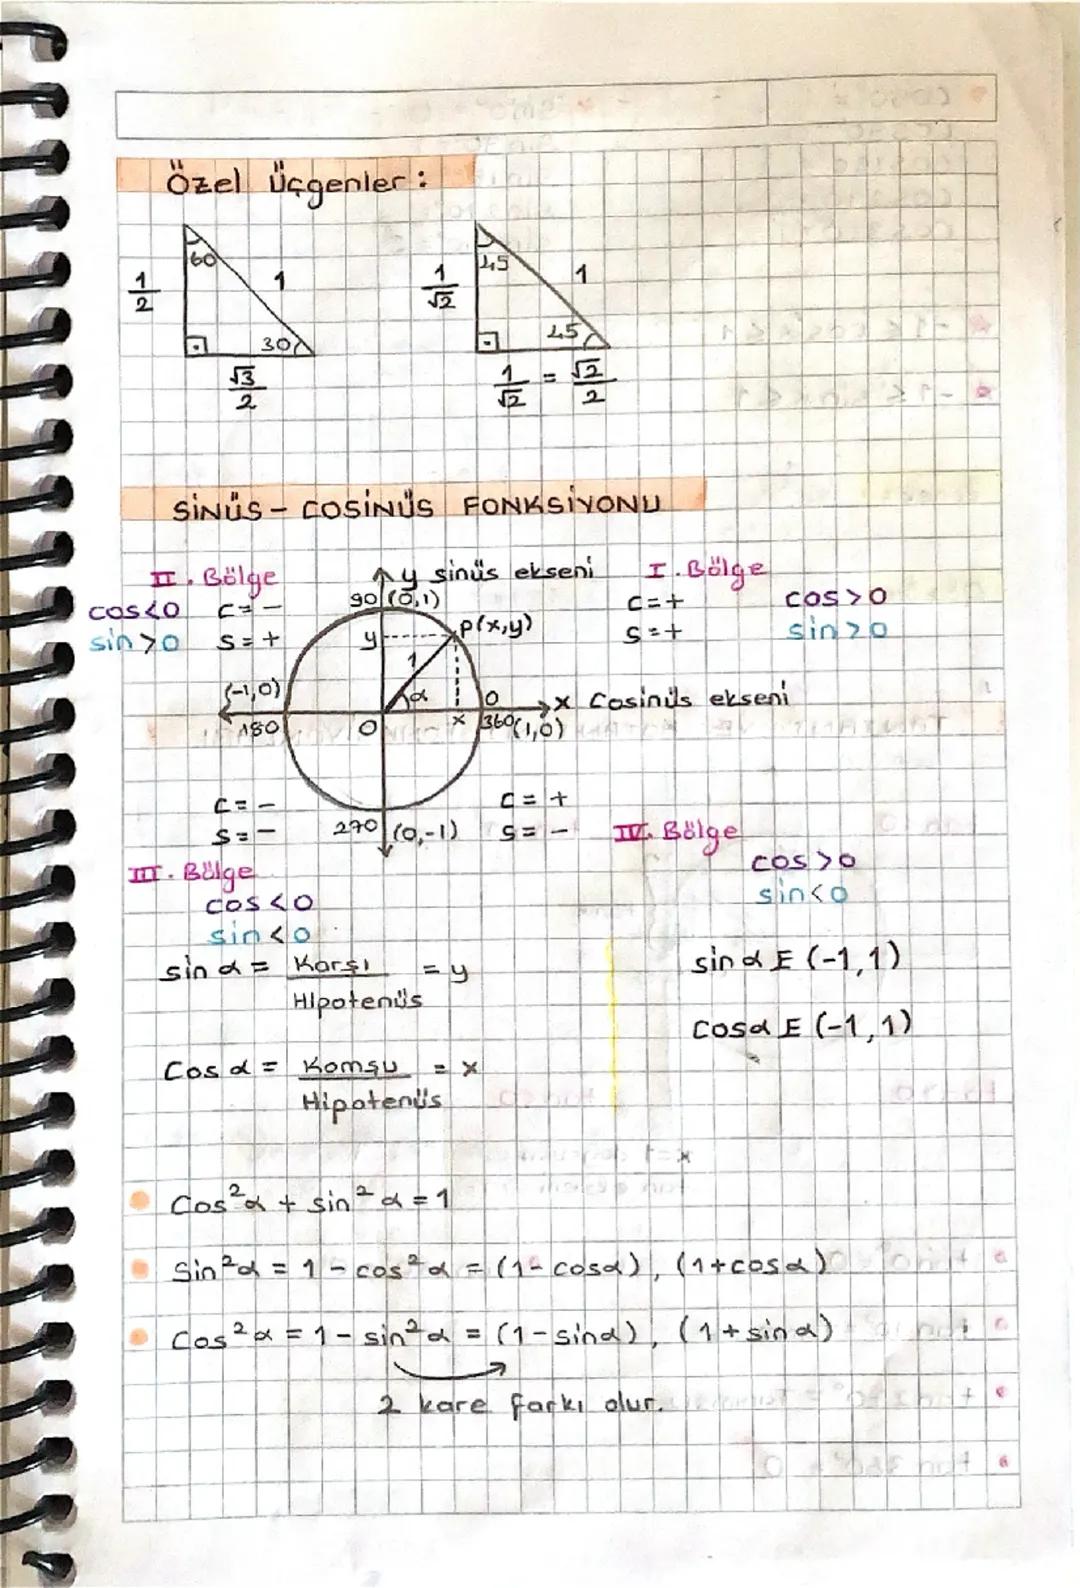 Özel Üçgenler:
60
1/2
1
30
√3/2
45
1/√2
1
45
1/√2 = √2/2
SİNÜS - COSİNÜS FONKSİYONU
II. Bölge
cos<0 C = -
sin>0 S = +
y sinüs ekseni
90 (0,1)
I. Bölge
C = + cos>0
S = + sin>0
y
P(x,y)
1
α
(-1,0)
180
O
x
0
360 (1,0)
x Cosinüs ekseni
C = -
S = -
270 (0,-1)
C = +
S = -
III. Bölge
cos<0
sin<0
IV. Bölge
cos>0
sin<0
sin α = Karşı/Hipotenüs = y
sin α E (-1,1)
Cos α = Komşu/Hipotenüs = x
Cosα E (-1,1)
Cos²α + sin²α = 1
Sin²α = 1 - cos²α = (1-cosα), (1+cosα)
Cos²α = 1 - sin²α = (1-sinα), (1+sinα)
2 kare farkı olur.